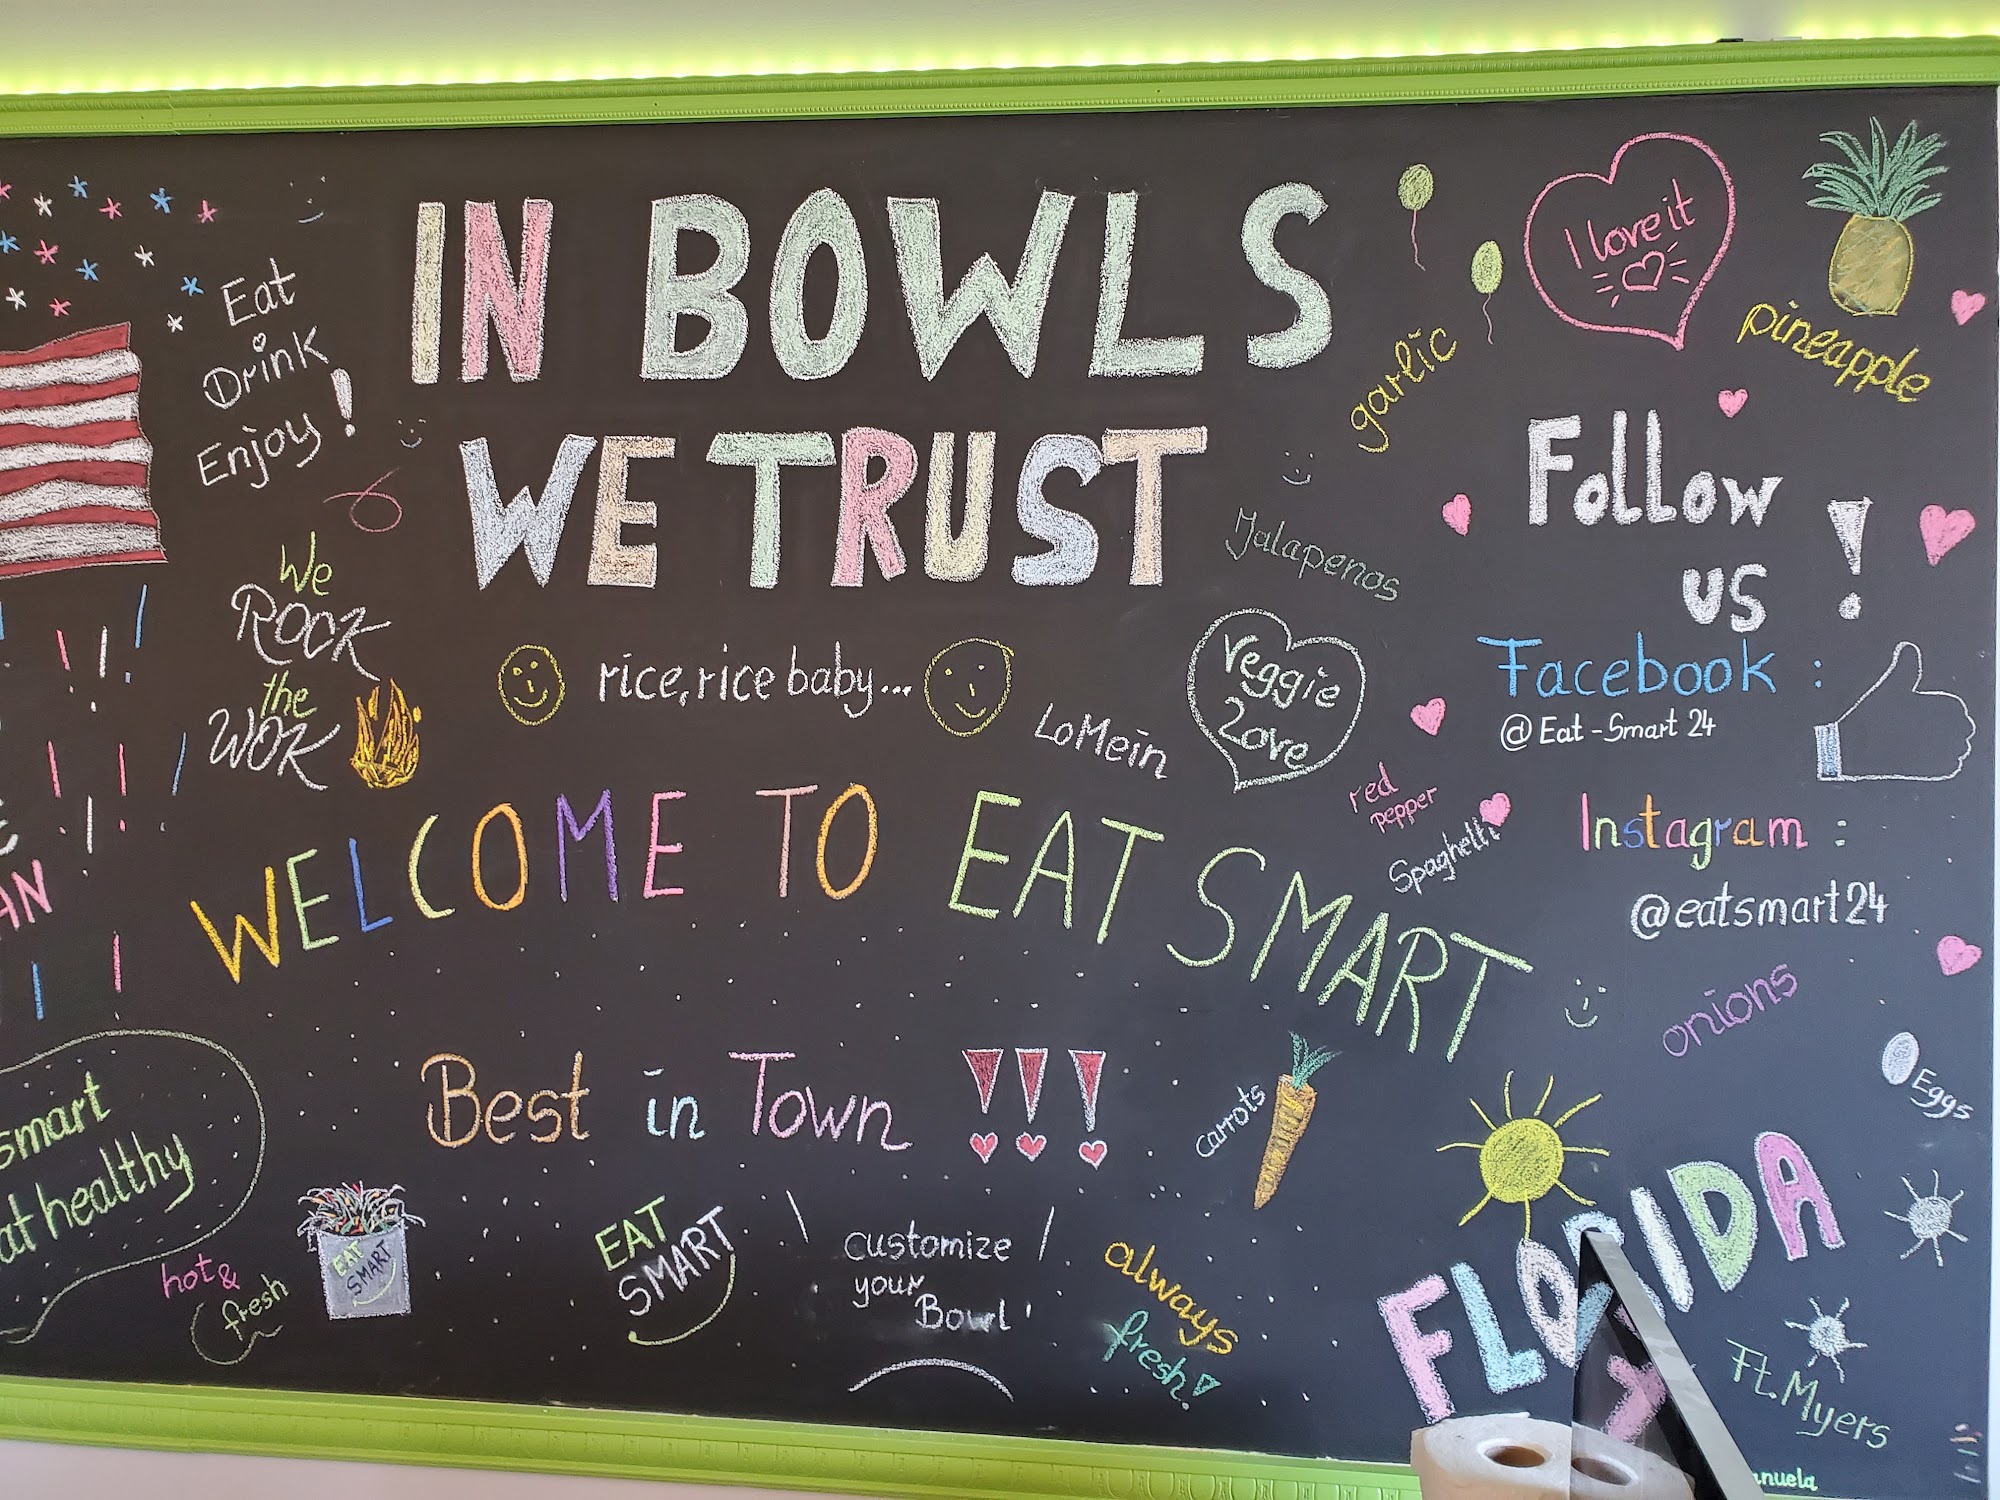 IN BOWLS
WE TRUST
Eat
Drink
Enjoy!
I love it
pineapple
garlic
Follow
us !
Jalapenos
We
ROCK
the
WOK
rice, rice baby...
LoMein
Veggie
Love
Facebook :
@Eat-Smart 24
red
pepper
Spaghetti
Instagram :
@eatsmart24
WELCOME TO EAT SMART
AN
onions
Best in Town !!!
carrots
Eggs
smart
at healthy
hot &
fresh
EAT
SMART
EAT
SMART
customize
your
Bowl
always
fresh!
FLORIDA
Ft. Myers
anuela